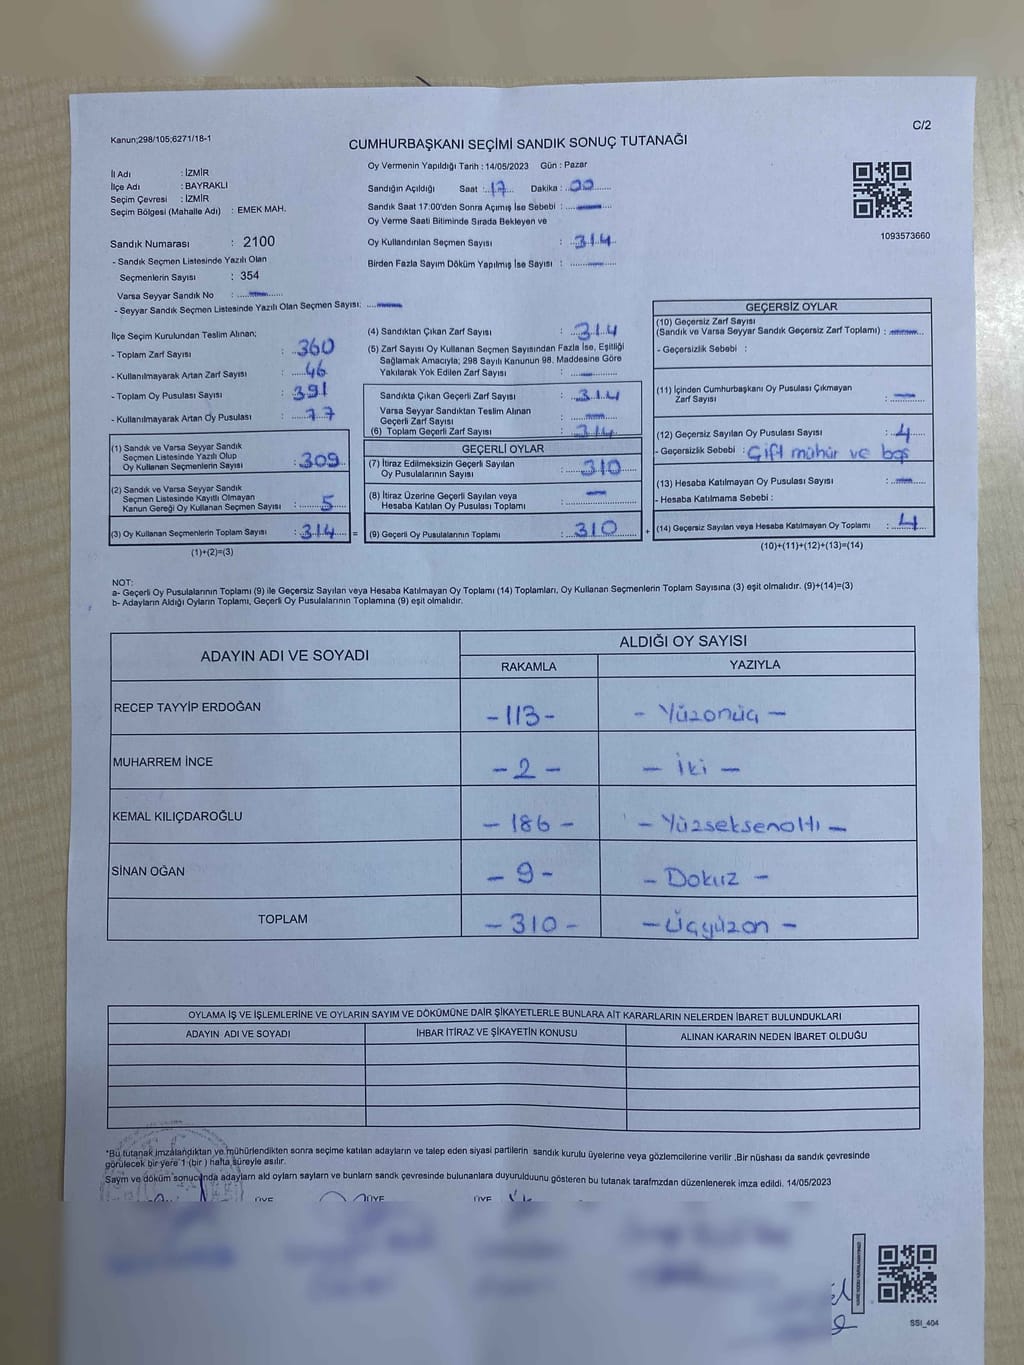 Kanun;298/105;6271/18-1
C/2
CUMHURBAŞKANI SEÇİMİ SANDIK SONUÇ TUTANAĞI
İl Adı : İZMİR
İlçe Adı : BAYRAKLI
Seçim Çevresi : İZMİR
Seçim Bölgesi (Mahalle Adı) : EMEK MAH.
Oy Vermenin Yapıldığı Tarih : 14/05/2023 Gün : Pazar
Sandığın Açıldığı Saat : 17 Dakika : 00
Sandık Saat 17:00'den Sonra Açımış İse Sebebi : —
Oy Verme Saati Bitiminde Sırada Bekleyen ve
Oy Kullandırılan Seçmen Sayısı : 314
Birden Fazla Sayım Döküm Yapılmış İse Sayısı : —
1093573660
Sandık Numarası : 2100
- Sandık Seçmen Listesinde Yazılı Olan
Seçmenlerin Sayısı : 354
Varsa Seyyar Sandık No : —
- Seyyar Sandık Seçmen Listesinde Yazılı Olan Seçmen Sayısı: —
İlçe Seçim Kurulundan Teslim Alınan;
- Toplam Zarf Sayısı : 360
- Kullanılmayarak Artan Zarf Sayısı : 46
- Toplam Oy Pusulası Sayısı : 391
- Kullanılmayarak Artan Oy Pusulası : 77
(1) Sandık ve Varsa Seyyar Sandık
Seçmen Listesinde Yazılı Olup
Oy Kullanan Seçmenlerin Sayısı : 309
(2) Sandık ve Varsa Seyyar Sandık
Seçmen Listesinde Kayıtlı Olmayan
Kanun Gereği Oy Kullanan Seçmen Sayısı : 5
(3) Oy Kullanan Seçmenlerin Toplam Sayısı : 314 =
(1)+(2)=(3)
(4) Sandıktan Çıkan Zarf Sayısı : 314
(5) Zarf Sayısı Oy Kullanan Seçmen Sayısından Fazla İse, Eşitliği
Sağlamak Amacıyla; 298 Sayılı Kanunun 98. Maddesine Göre
Yakılarak Yok Edilen Zarf Sayısı : —
Sandıkta Çıkan Geçerli Zarf Sayısı : 314
Varsa Seyyar Sandıktan Teslim Alınan
Geçerli Zarf Sayısı : —
(6) Toplam Geçerli Zarf Sayısı : 314
GEÇERLİ OYLAR
(7) İtiraz Edilmeksizin Geçerli Sayılan
Oy Pusulalarının Sayısı : 310
(8) İtiraz Üzerine Geçerli Sayılan veya
Hesaba Katılan Oy Pusulası Toplamı : —
(9) Geçerli Oy Pusulalarının Toplamı : 310 +
GEÇERSİZ OYLAR
(10) Geçersiz Zarf Sayısı
(Sandık ve Varsa Seyyar Sandık Geçersiz Zarf Toplamı) : —
- Geçersizlik Sebebi :
(11) İçinden Cumhurbaşkanı Oy Pusulası Çıkmayan
Zarf Sayısı : —
(12) Geçersiz Sayılan Oy Pusulası Sayısı : 4
- Geçersizlik Sebebi : Çift mühür ve boş
(13) Hesaba Katılmayan Oy Pusulası Sayısı : —
- Hesaba Katılmama Sebebi :
(14) Geçersiz Sayılan veya Hesaba Katılmayan Oy Toplamı : 4
(10)+(11)+(12)+(13)=(14)
NOT:
a- Geçerli Oy Pusulalarının Toplamı (9) ile Geçersiz Sayılan veya Hesaba Katılmayan Oy Toplamı (14) Toplamları, Oy Kullanan Seçmenlerin Toplam Sayısına (3) eşit olmalıdır. (9)+(14)=(3)
b- Adayların Aldığı Oyların Toplamı, Geçerli Oy Pusulalarının Toplamına (9) eşit olmalıdır.
ADAYIN ADI VE SOYADI ALDIĞI OY SAYISI
RAKAMLA YAZIYLA
RECEP TAYYİP ERDOĞAN -113- - Yüzonüç -
MUHARREM İNCE - 2 - - İki -
KEMAL KILIÇDAROĞLU - 186 - - Yüzseksenaltı -
SİNAN OĞAN - 9 - - Dokuz -
TOPLAM - 310 - - Üçyüzon -
OYLAMA İŞ VE İŞLEMLERİNE VE OYLARIN SAYIM VE DÖKÜMÜNE DAİR ŞİKAYETLERLE BUNLARA AİT KARARLARIN NELERDEN İBARET BULUNDUKLARI
ADAYIN ADI VE SOYADI İHBAR İTİRAZ VE ŞİKAYETİN KONUSU ALINAN KARARIN NEDEN İBARET OLDUĞU
*Bu tutanak imzalandıktan ve mühürlendikten sonra seçime katılan adayların ve talep eden siyasi partilerin sandık kurulu üyelerine veya gözlemcilerine verilir .Bir nüshası da sandık çevresinde
görülecek bir yere 1 (bir ) hafta süreyle asılır.
Sayım ve döküm sonucunda adayların ald oyların sayların ve bunların sandk çevresinde bulunanlara duyurulduunu gösteren bu tutanak tarafımzdan düzenlenerek imza edildi. 14/05/2023
ÜYE ÜYE ÜYE
SSI_404